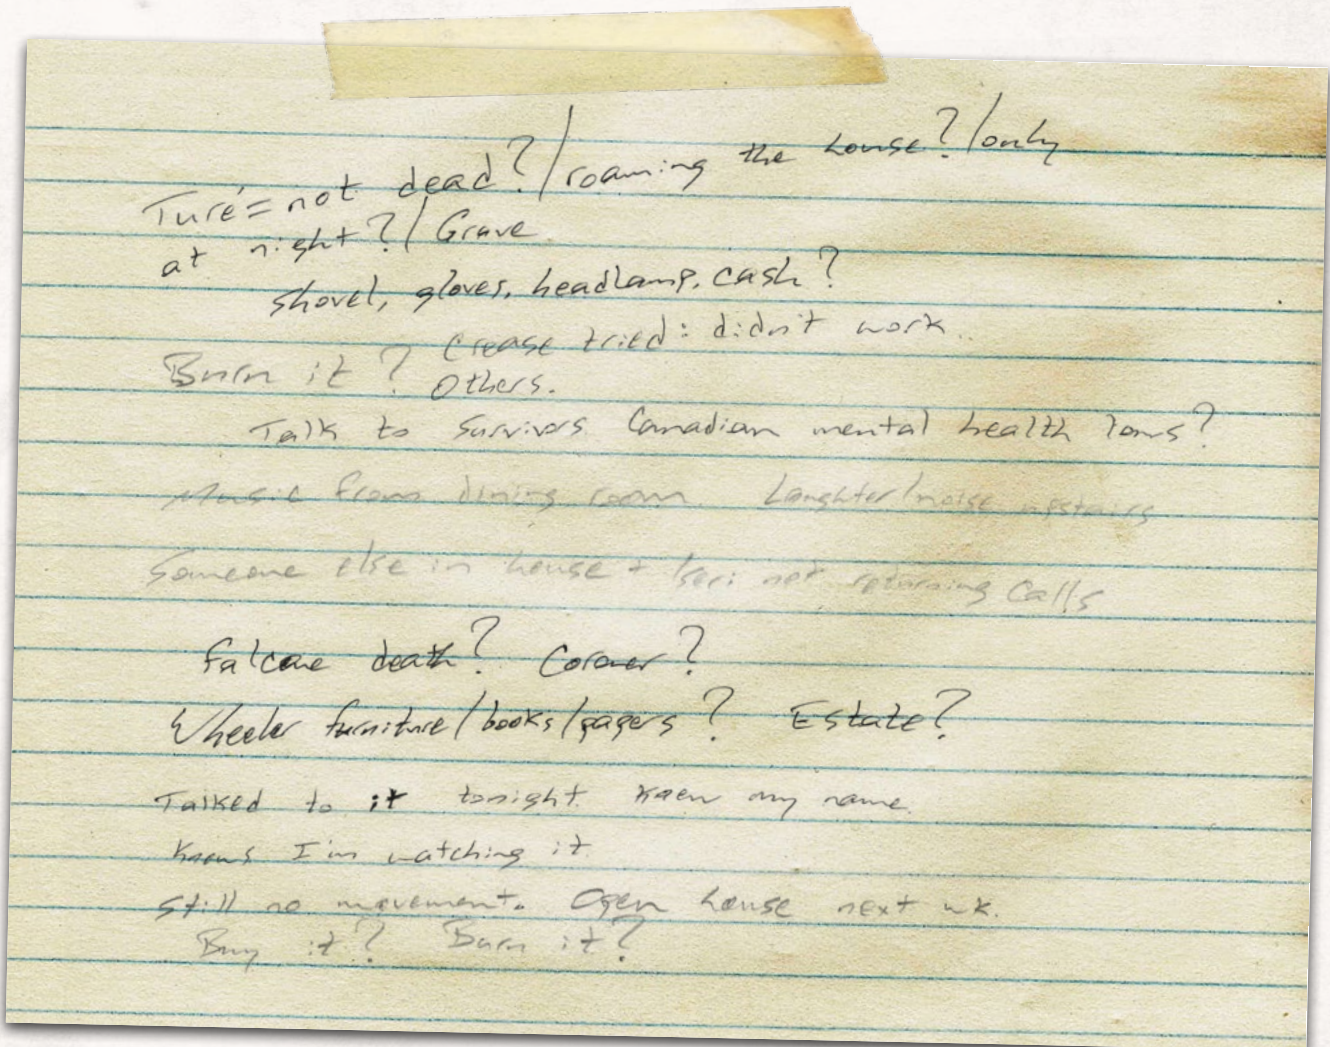 Turé = not dead? / roaming the house? / only
at night? / Grave
shovel, gloves, headlamp, cash?
Burn it? Crease tried: didn't work.
Others.
Talk to survivors Canadian mental health laws?
Music from dining room Laughter/noise upstairs
Someone else in house + not returning calls
Falcone death? Coroner?
Wheeler furniture/books/papers? Estate?
Talked to it tonight. Knew my name.
Knows I'm watching it
Still no movement. Open house next wk.
Buy it? Burn it?